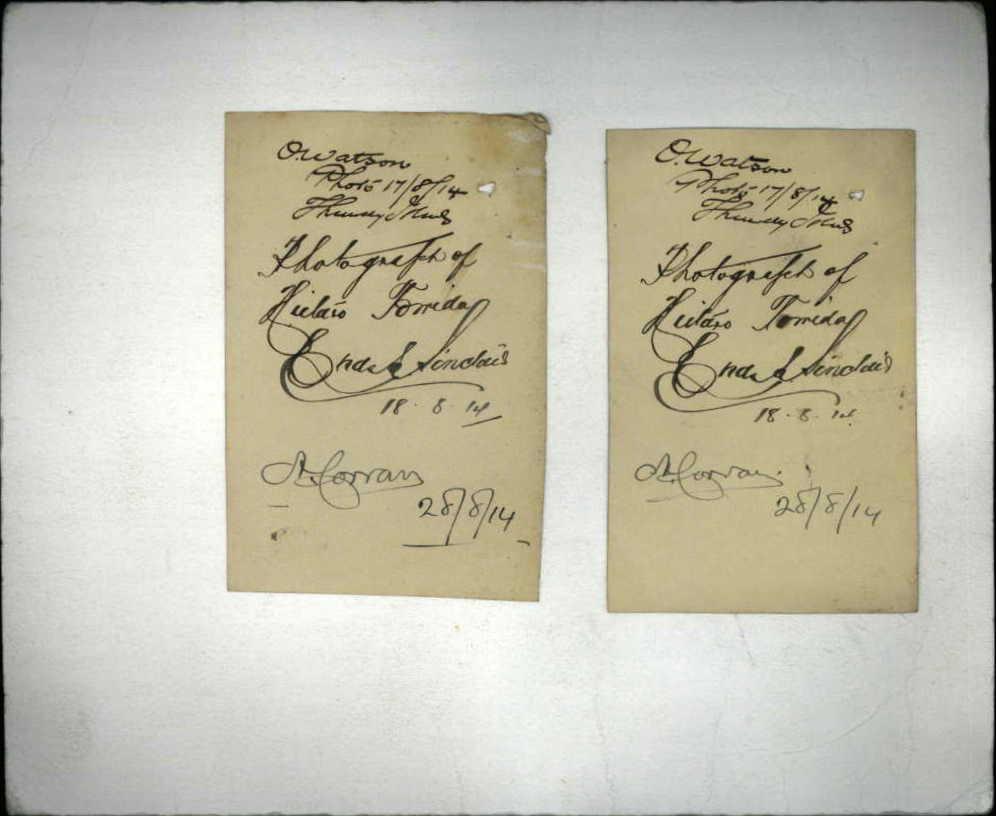 O. Watson
Photo 17/8/14
Photograph of
Hilario Torrida
Sinclair
18.8.14
A. Corran
28/8/14
O. Watson
Photo 17/8/14
Photograph of
Hilario Torrida
Sinclair
18.8.14
A. Corran
28/8/14